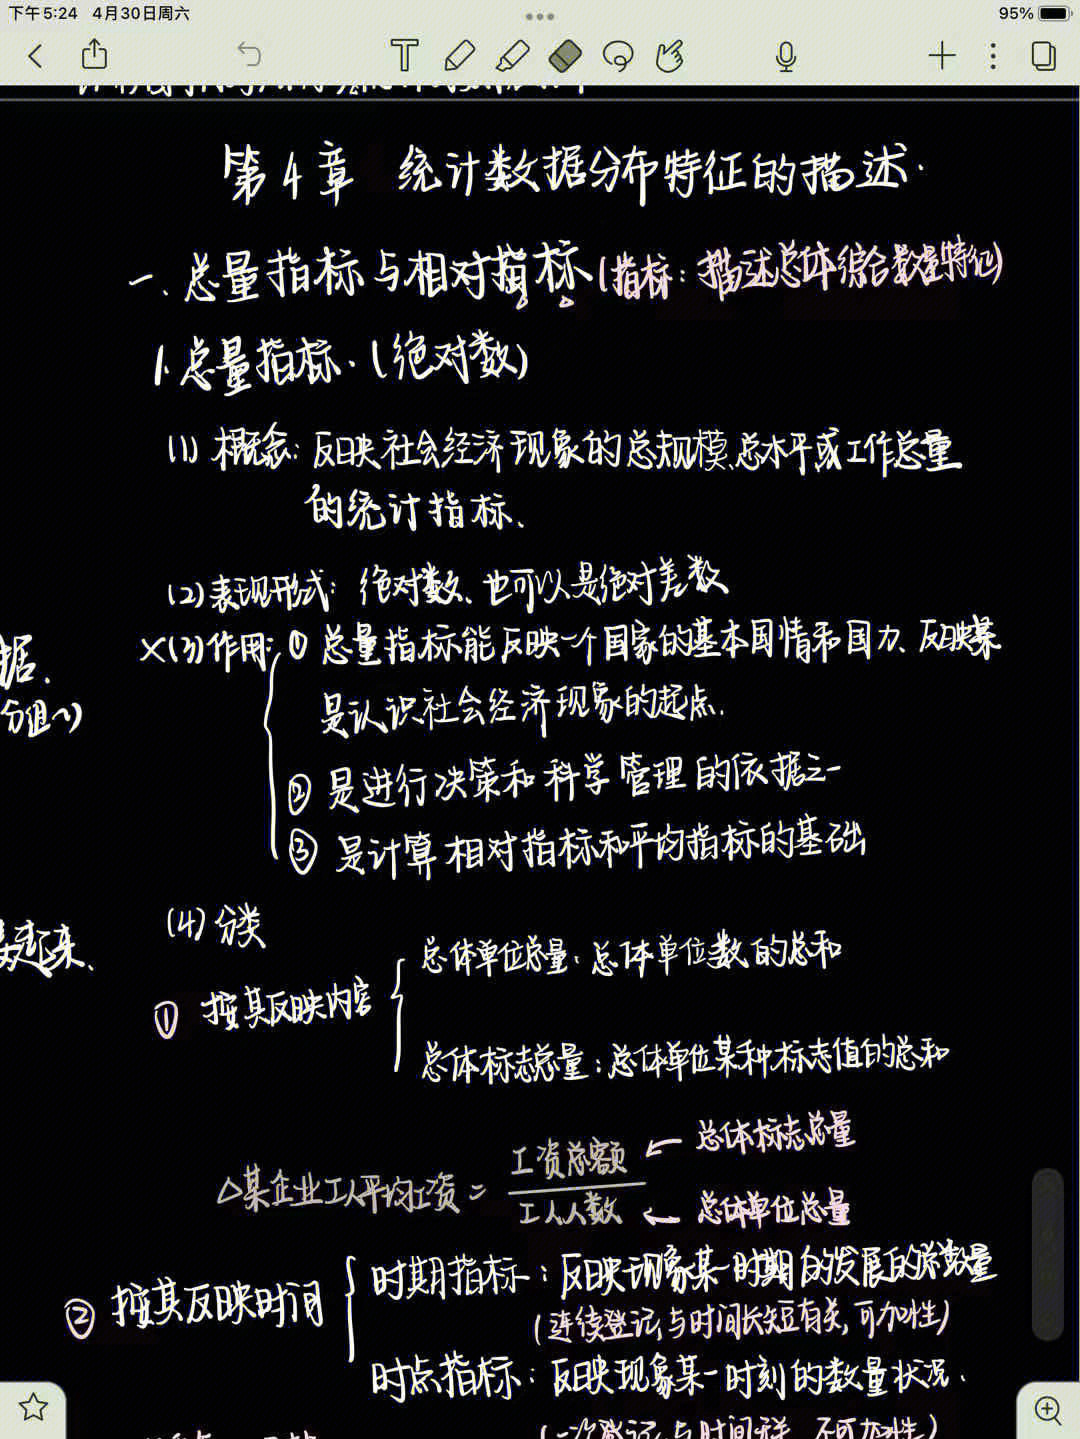 下午5:24 4月30日周六
95%
第4章 统计数据分布特征的描述.
一、总量指标与相对指标(指标:描述总体综合数量特征)
1.总量指标.(绝对数)
(1)概念:反映社会经济现象的总规模、总水平或工作总量
的统计指标、
(2)表现形式:绝对数、也可以是绝对差数
据、
×(3)作用:① 总量指标能反映一个国家的基本国情和国力、反映某
分组~)
是认识社会经济现象的起点.
② 是进行决策和科学管理的依据之一
③ 是计算相对指标和平均指标的基础
(4)分类
起来、
总体单位总量:总体单位数的总和
① 按其反映内容
总体标志总量:总体单位某种标志值的总和
△某企业工人平均工资= 工资总额 ← 总体标志总量
工人人数 ← 总体单位总量
② 按其反映时间
时期指标:反映现象某一时期的发展的总数量
(连续登记,与时间长短有关,可加性)
时点指标:反映现象某一时刻的数量状况.
(一次登记,与时间无关,不可加性)